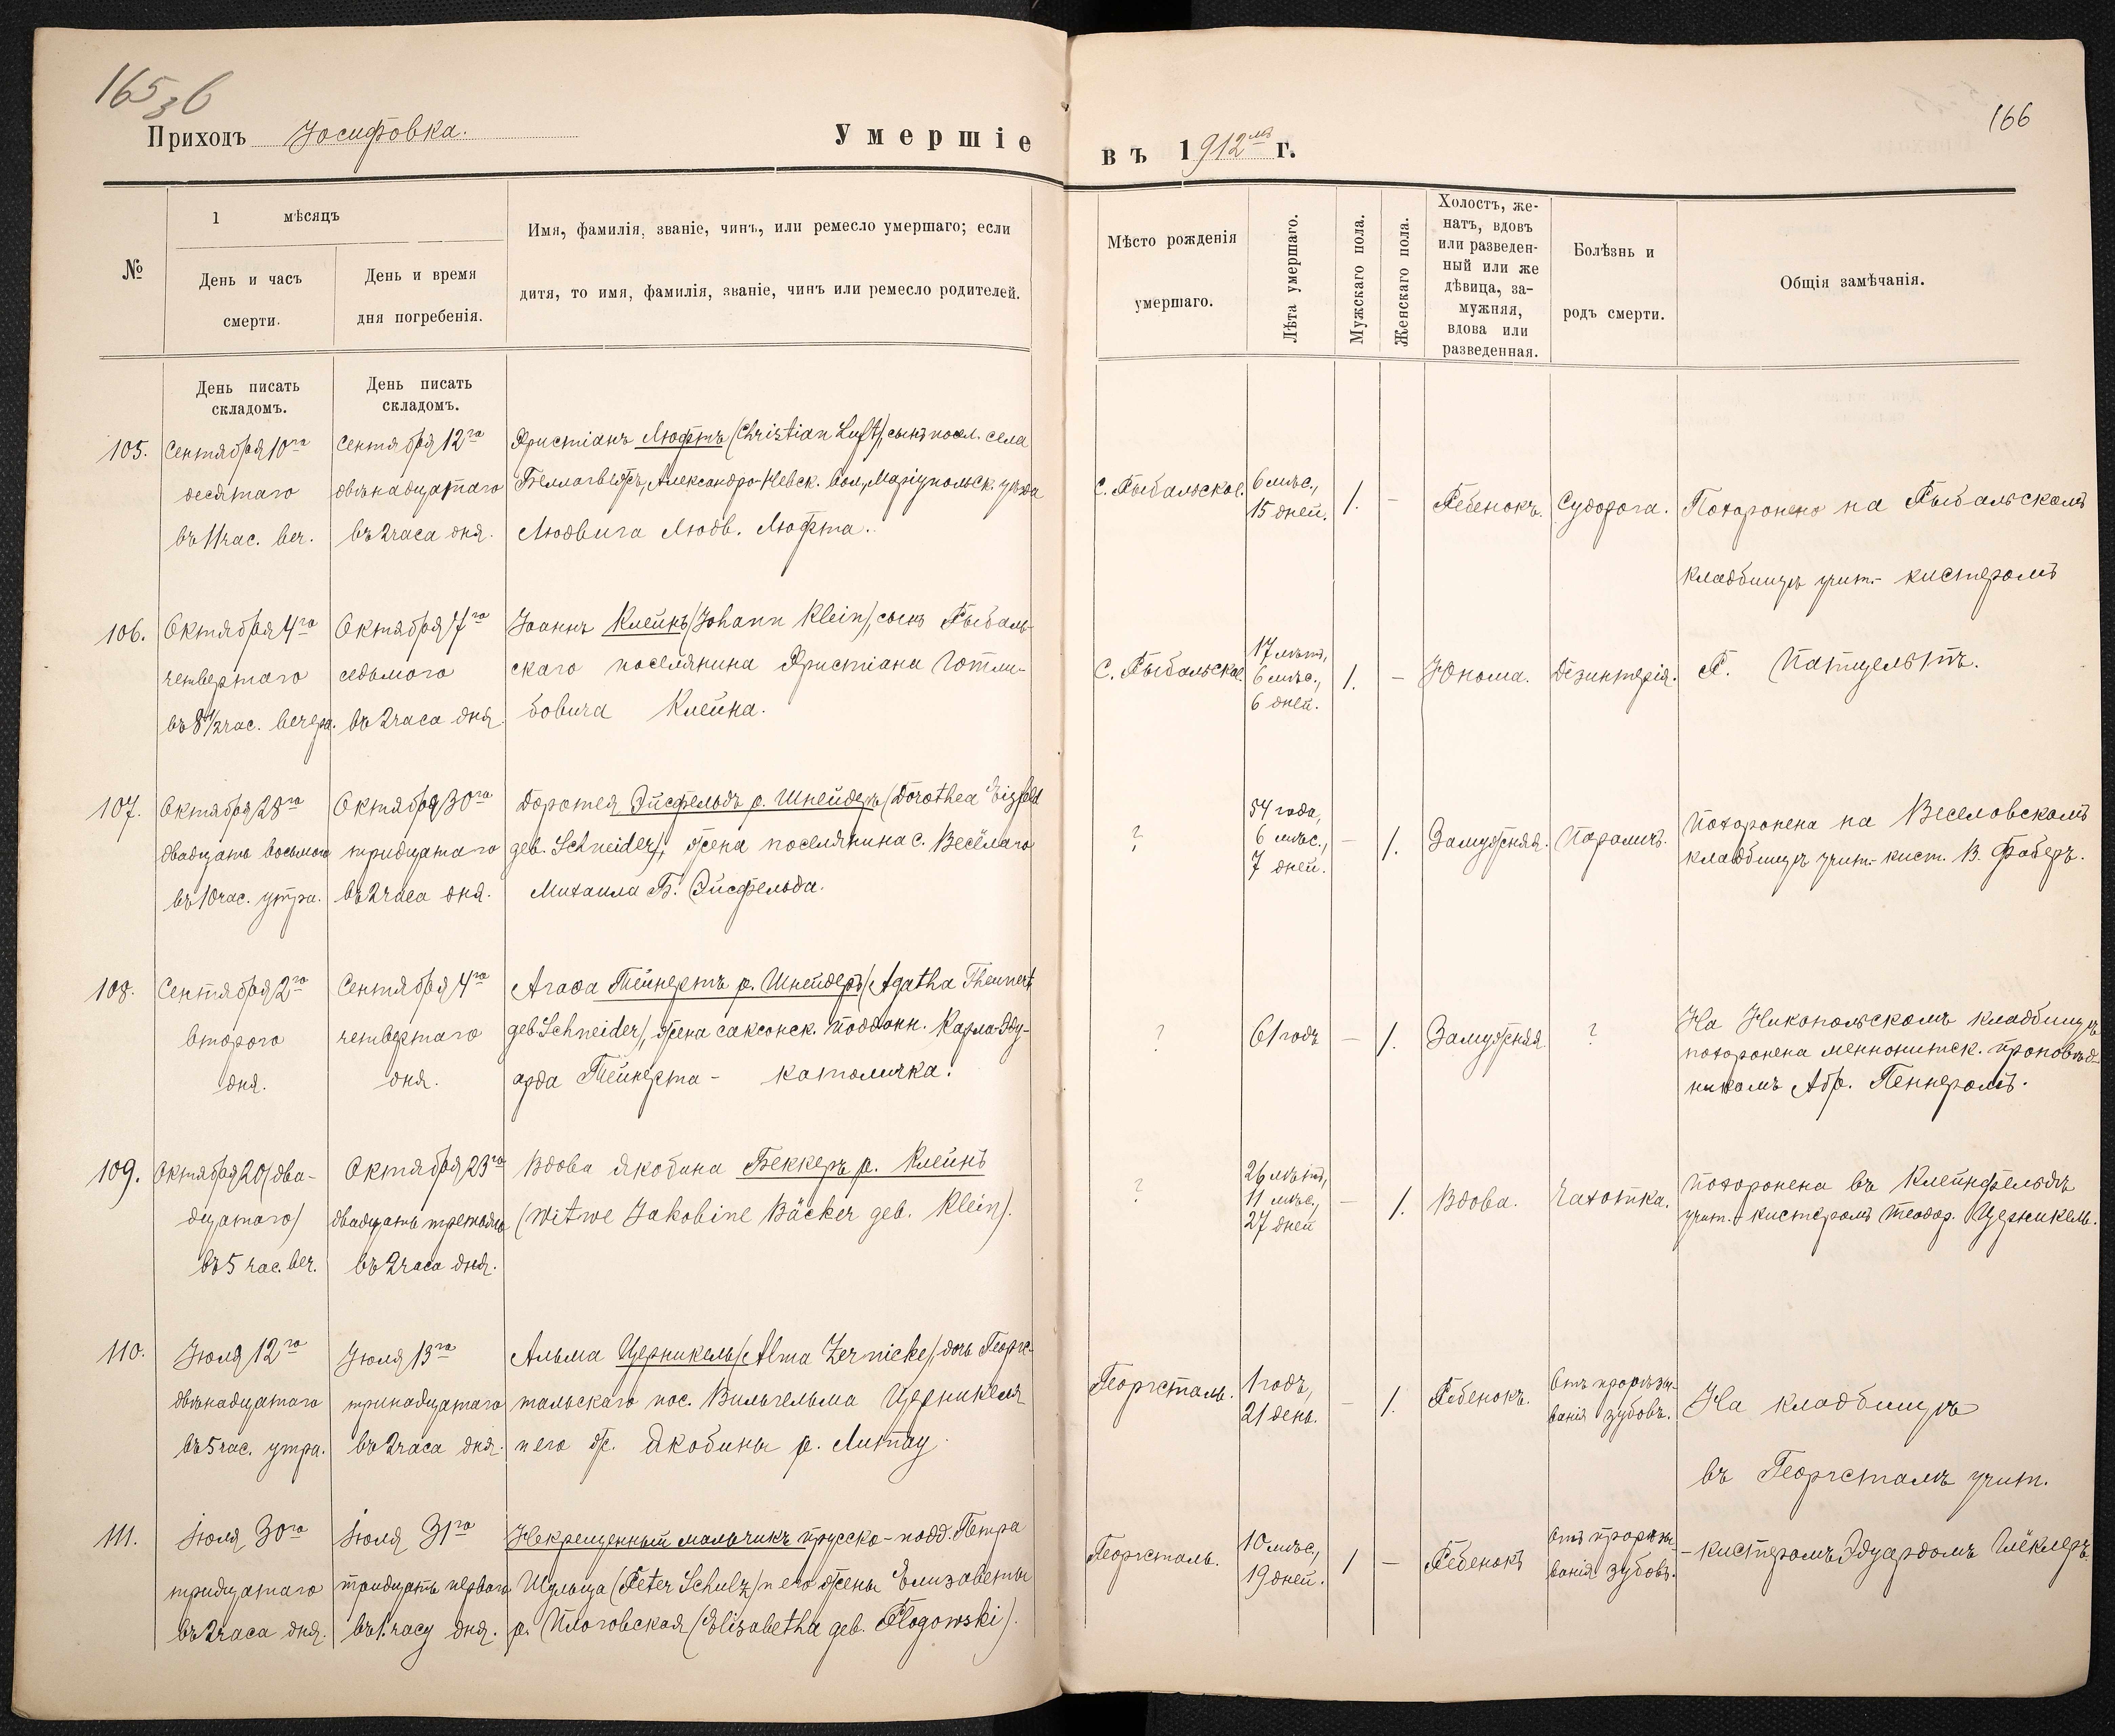 165 зб
Приходъ Іосифовка.
Умершіе
въ 1912мъ г.
166
№
1 мѣсяцъ
День и часъ
смерти.
День и время
дня погребенія.
Имя, фамилія, званіе, чинъ, или ремесло умершаго; если
дитя, то имя, фамилія, званіе, чинъ или ремесло родителей.
Мѣсто рожденія
умершаго.
Лѣта умершаго.
Мужскаго пола.
Женскаго пола.
Холостъ, же-
натъ, вдовъ
или разведен-
ный или же
дѣвица, за-
мужняя,
вдова или
разведенная.
Болѣзнь и
родъ смерти.
Общія замѣчанія.
День писать
складомъ.
День писать
складомъ.
105.
Сентября 10го
десятаго
въ 11 час. веч.
Сентября 12го
двѣнадцатаго
въ 2 часа дня.
Христіанъ Люфтъ (Christian Luft), сынъ посел. села
Беллагвешъ, Александро-Невск. вол., Маріупольск. уѣзда
Людвига Людв. Люфта.
с. Рыбальское.
6 мѣс.,
15 дней.
1.
–
Ребенокъ.
Судорога.
Похоронено на Рыбальскомъ
кладбищѣ учит.- кистеромъ
106.
Октября 4го
четвертаго
въ 8 1/2 час. вечера.
Октября 7го
седьмого
въ 2 часа дня.
Іоаннъ Клейнъ (Johann Klein), сынъ Рыбаль-
скаго поселянина Христіана Готли-
бовича Клейна.
с. Рыбальское.
17 лѣтъ,
6 мѣс.,
6 дней.
1.
–
Юноша.
Дезинтерія.
Р. Патцельтъ.
107.
Октября 28го
двадцать восьмого
въ 10 час. утра.
Октября 30го
тридцатаго
въ 2 часа дня.
Доротея Эйсфельдъ р. Шнейдеръ (Dorothea Eisfeld
geb. Schneider), жена поселянина с. Весёлаго
Михаила Б. Эйсфельда.
?
54 года,
6 мѣс.,
7 дней.
–
1.
Замужняя.
Параличъ.
Похоронена на Веселовскомъ
кладбищѣ учит.- кист. В. Фаберъ.
108.
Сентября 2го
второго
дня.
Сентября 4го
четвертаго
дня.
Агаѳа Тейнертъ р. Шнейдеръ (Agatha Theunert
geb. Schneider), жена саксонск. поддонн. Карла-Эду-
арда Тейнерта – католичка!
?
61 годъ
–
1.
Замужняя.
?
На Никопольскомъ кладбищѣ
похоронена меннонитск. проповѣд-
никомъ Абр. Пеннеромъ.
109.
Октября 20 (два-
дцатаго)
въ 5 час. веч.
Октября 23го
двадцать третьяго
въ 2 часа дня.
Вдова Якобина Беккеръ р. Клейнъ
(Witwe Jakobine Bäcker geb. Klein).
?
26 лѣтъ,
11 мѣс.,
27 дней
–
1.
Вдова.
Чахотка.
Похоронена въ Клейнфельдѣ
учит.- кистеромъ Теодор. Церникель.
110.
Іюля 12го
двѣнадцатаго
въ 5 час. утра.
Іюля 13го
тринадцатаго
въ 2 часа дня.
Альма Церникель (Alma Zernickel), дочь Георгс-
тальскаго пос. Вильгельма Церникеля
и его ж. Якобины р. Литау.
Георгсталь.
1 годъ,
21 день.
–
1.
Ребенокъ.
Отъ прорѣзы-
ванія зубовъ.
На кладбищѣ
въ Георгсталѣ учит.
111.
Іюля 30го
тридцатаго
въ 2 часа дня.
Іюля 31го
тридцать перваго
въ 1. часу дня.
Некрещенный мальчикъ прусско-подд. Петра
Шульца (Peter Schulz) и его жены Елизаветы
р. Плоговская (Elisabetha geb. Plogowski).
Георгсталь.
10 мѣс.,
19 дней.
1
–
Ребенокъ
Отъ прорѣзы-
ванія зубовъ.
-кистеромъ Эдуардомъ Глёклеръ.